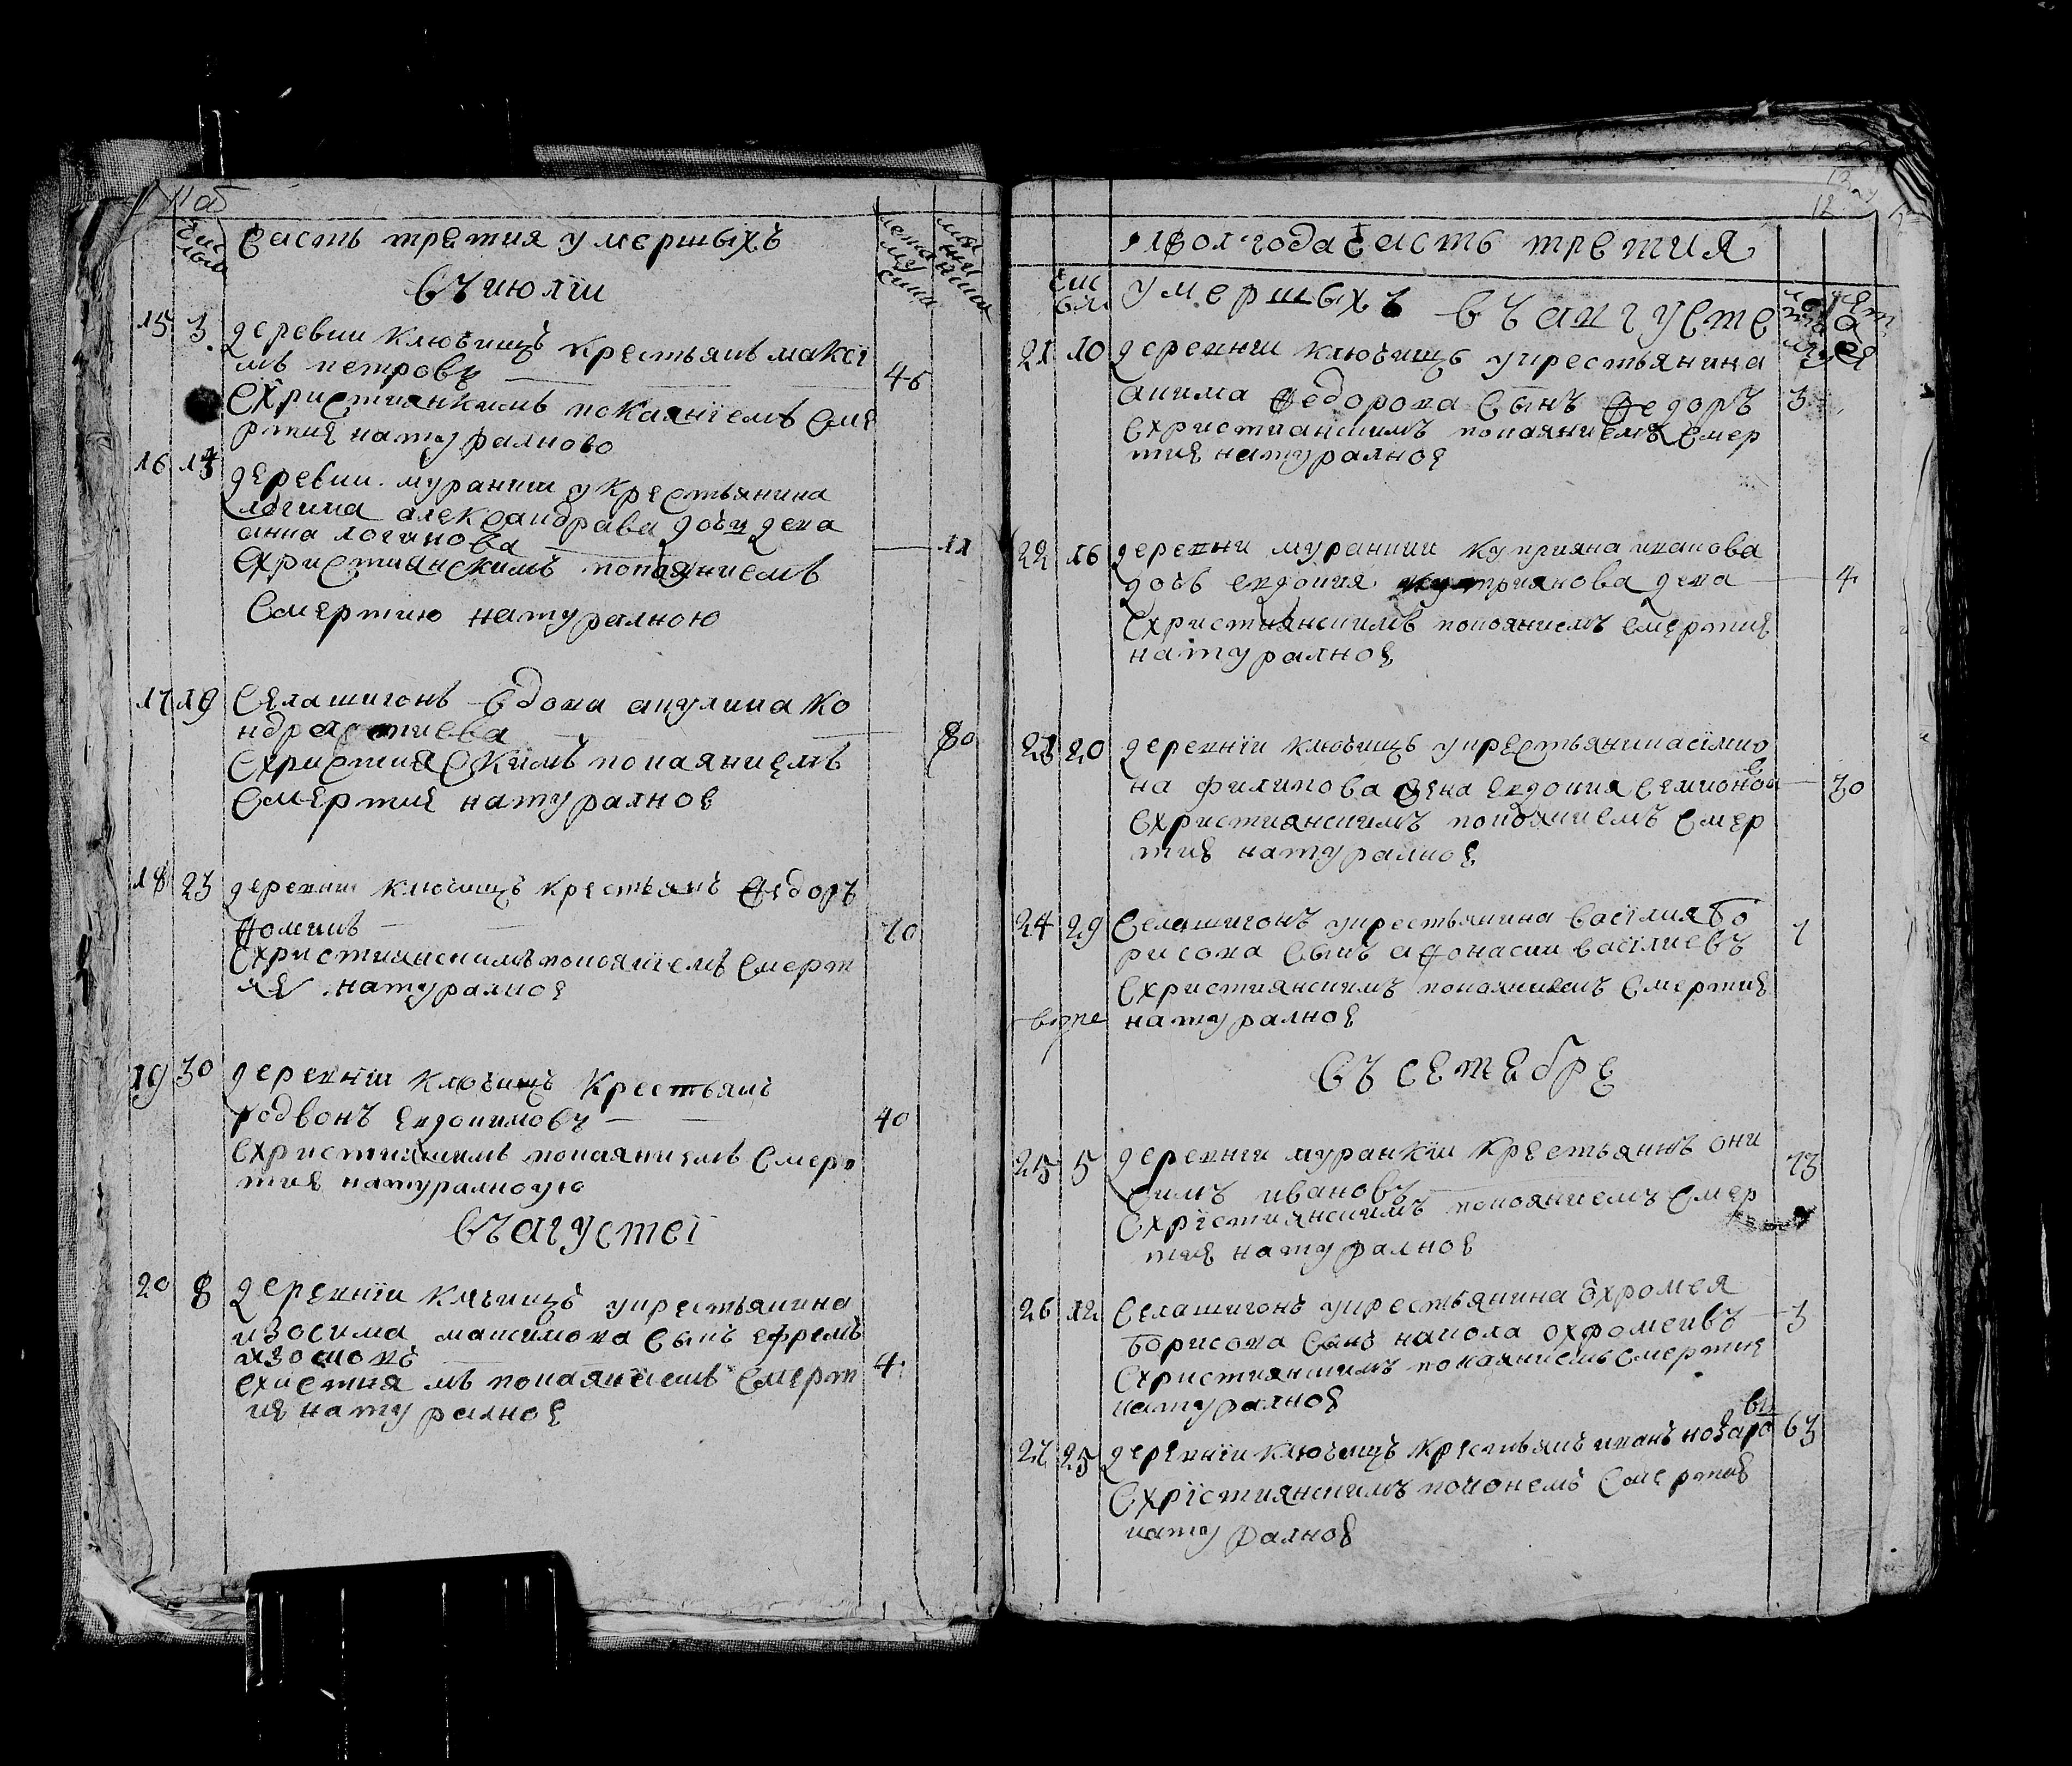 11 об
Часть третия умершыхъ
въ июлїи
15 3 деревни ключищъ крестьянъ максї
мъ петровъ 45
Схристиянкимъ покаянїемъ Сме
ртие натуралново
16 13 деревни муранки у крестьянина
логина александрава дочь дека
анна логинова 11
Схристиянскимъ покаяниемъ
Смертию натуралною
17 19 Села шигонъ вдова акулина ко
ндратиева 80
Схристияскимъ покаяниемъ
Смертие натуралное
18 23 деревни ключищъ крестьянъ Ѳедоръ
Ѳоминъ 70
Схристиянскимъ покояїемъ Смерт
ие натуралное
19 30 деревнїи ключищъ крестьянъ
родвонъ Евдокимовъ 40
Схристиянкимъ покаяниемъ Смер
тие натуралноую
въ агустеї
20 8 деревнїи клчищъ укрестьянина
изосима максимова Сынъ ефремъ
изосиовъ
Схистия мъ покаянїемъ Смерт 4
ие натуралное
1801 года Часть третия
Чис
умершыхъ въ августе
21 10 деревнїи ключищъ укрестьянина
акима Ѳедорова Сынъ Ѳедоръ 3
Схристианскимъ покаяниемъ Смер
тие натуралное
22 16 деревни муранкии куприяна иванова
дочь евдокия куприянова дека 4
Схристиянскимъ покоянием Смертие
натуралное
23 20 деревнїи ключищъ укрестьянина сїмио
на филипова Жена Евдокия Семионов 30
Схристиянскимъ покояниемъ Смер
тие натуралное
24 29 Села шигонъ укрестьянина Василия бо
рисова Сынъ аѲонасии василиевъ 1
Схристиянскимъ покаяниемъ Смертие
натуралное
въ сетебре
25 5 деревнїи муранкїи крестьянинъ они
симъ ивановъ 73
Схрїстиянскимъ покояниемъ Смер
тие натуралное
26 12 Села шигонъ укрестьянина Охромея
борисова Сынъ накола охромеивъ 3
Схристиянкимъ покаяниемъ Смертие
натуралное
27 25 деревнїи ключищъ крестьянъ иванъ нозаро въ 63
Схрїстиянскимъ поконемъ Смертие
натуралное